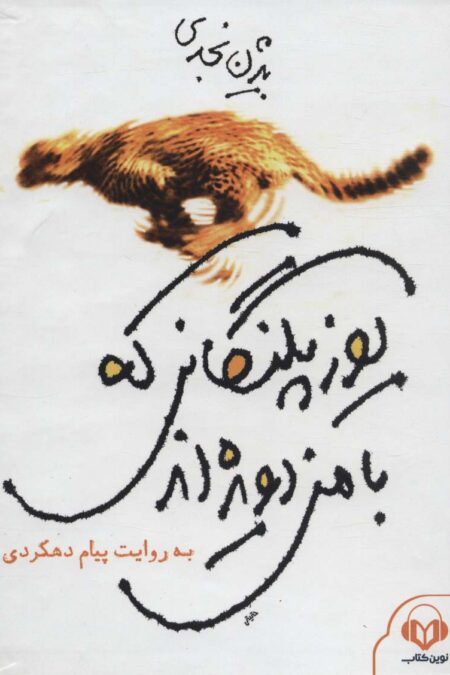 بیژن نجدی
یوزپلنگانی که
با من دویده‌اند
به روایت پیام دهکردی
نوین کتاب